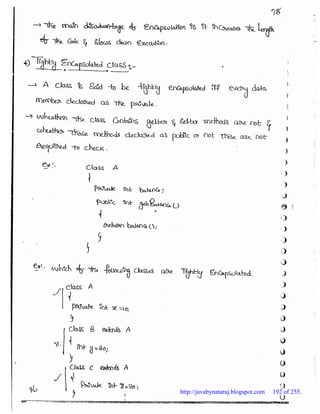 98
→ The main disadvantage of Encapsulation is it increases the length
of the code & slows down execution.
4) Tightly Encapsulated class :-
→ A class is said to be tightly encapsulated iff every data
member declared as the private.
→ whether the class contains getter & setter methods are not &
whether those methods declared as public or not these are not
required to check.
Ex:- class A
{
private int balance;
public int getBalance()
{
return balance;
}
}
Ex:- which of the following classes are Tightly Encapsulated.
✓ class A
{
private int x=10;
}
class B extends A
{
int y=20;
}
✓ class C extends A
{
private int z=30;
}
http://javabynataraj.blogspot.com 192 of 255.